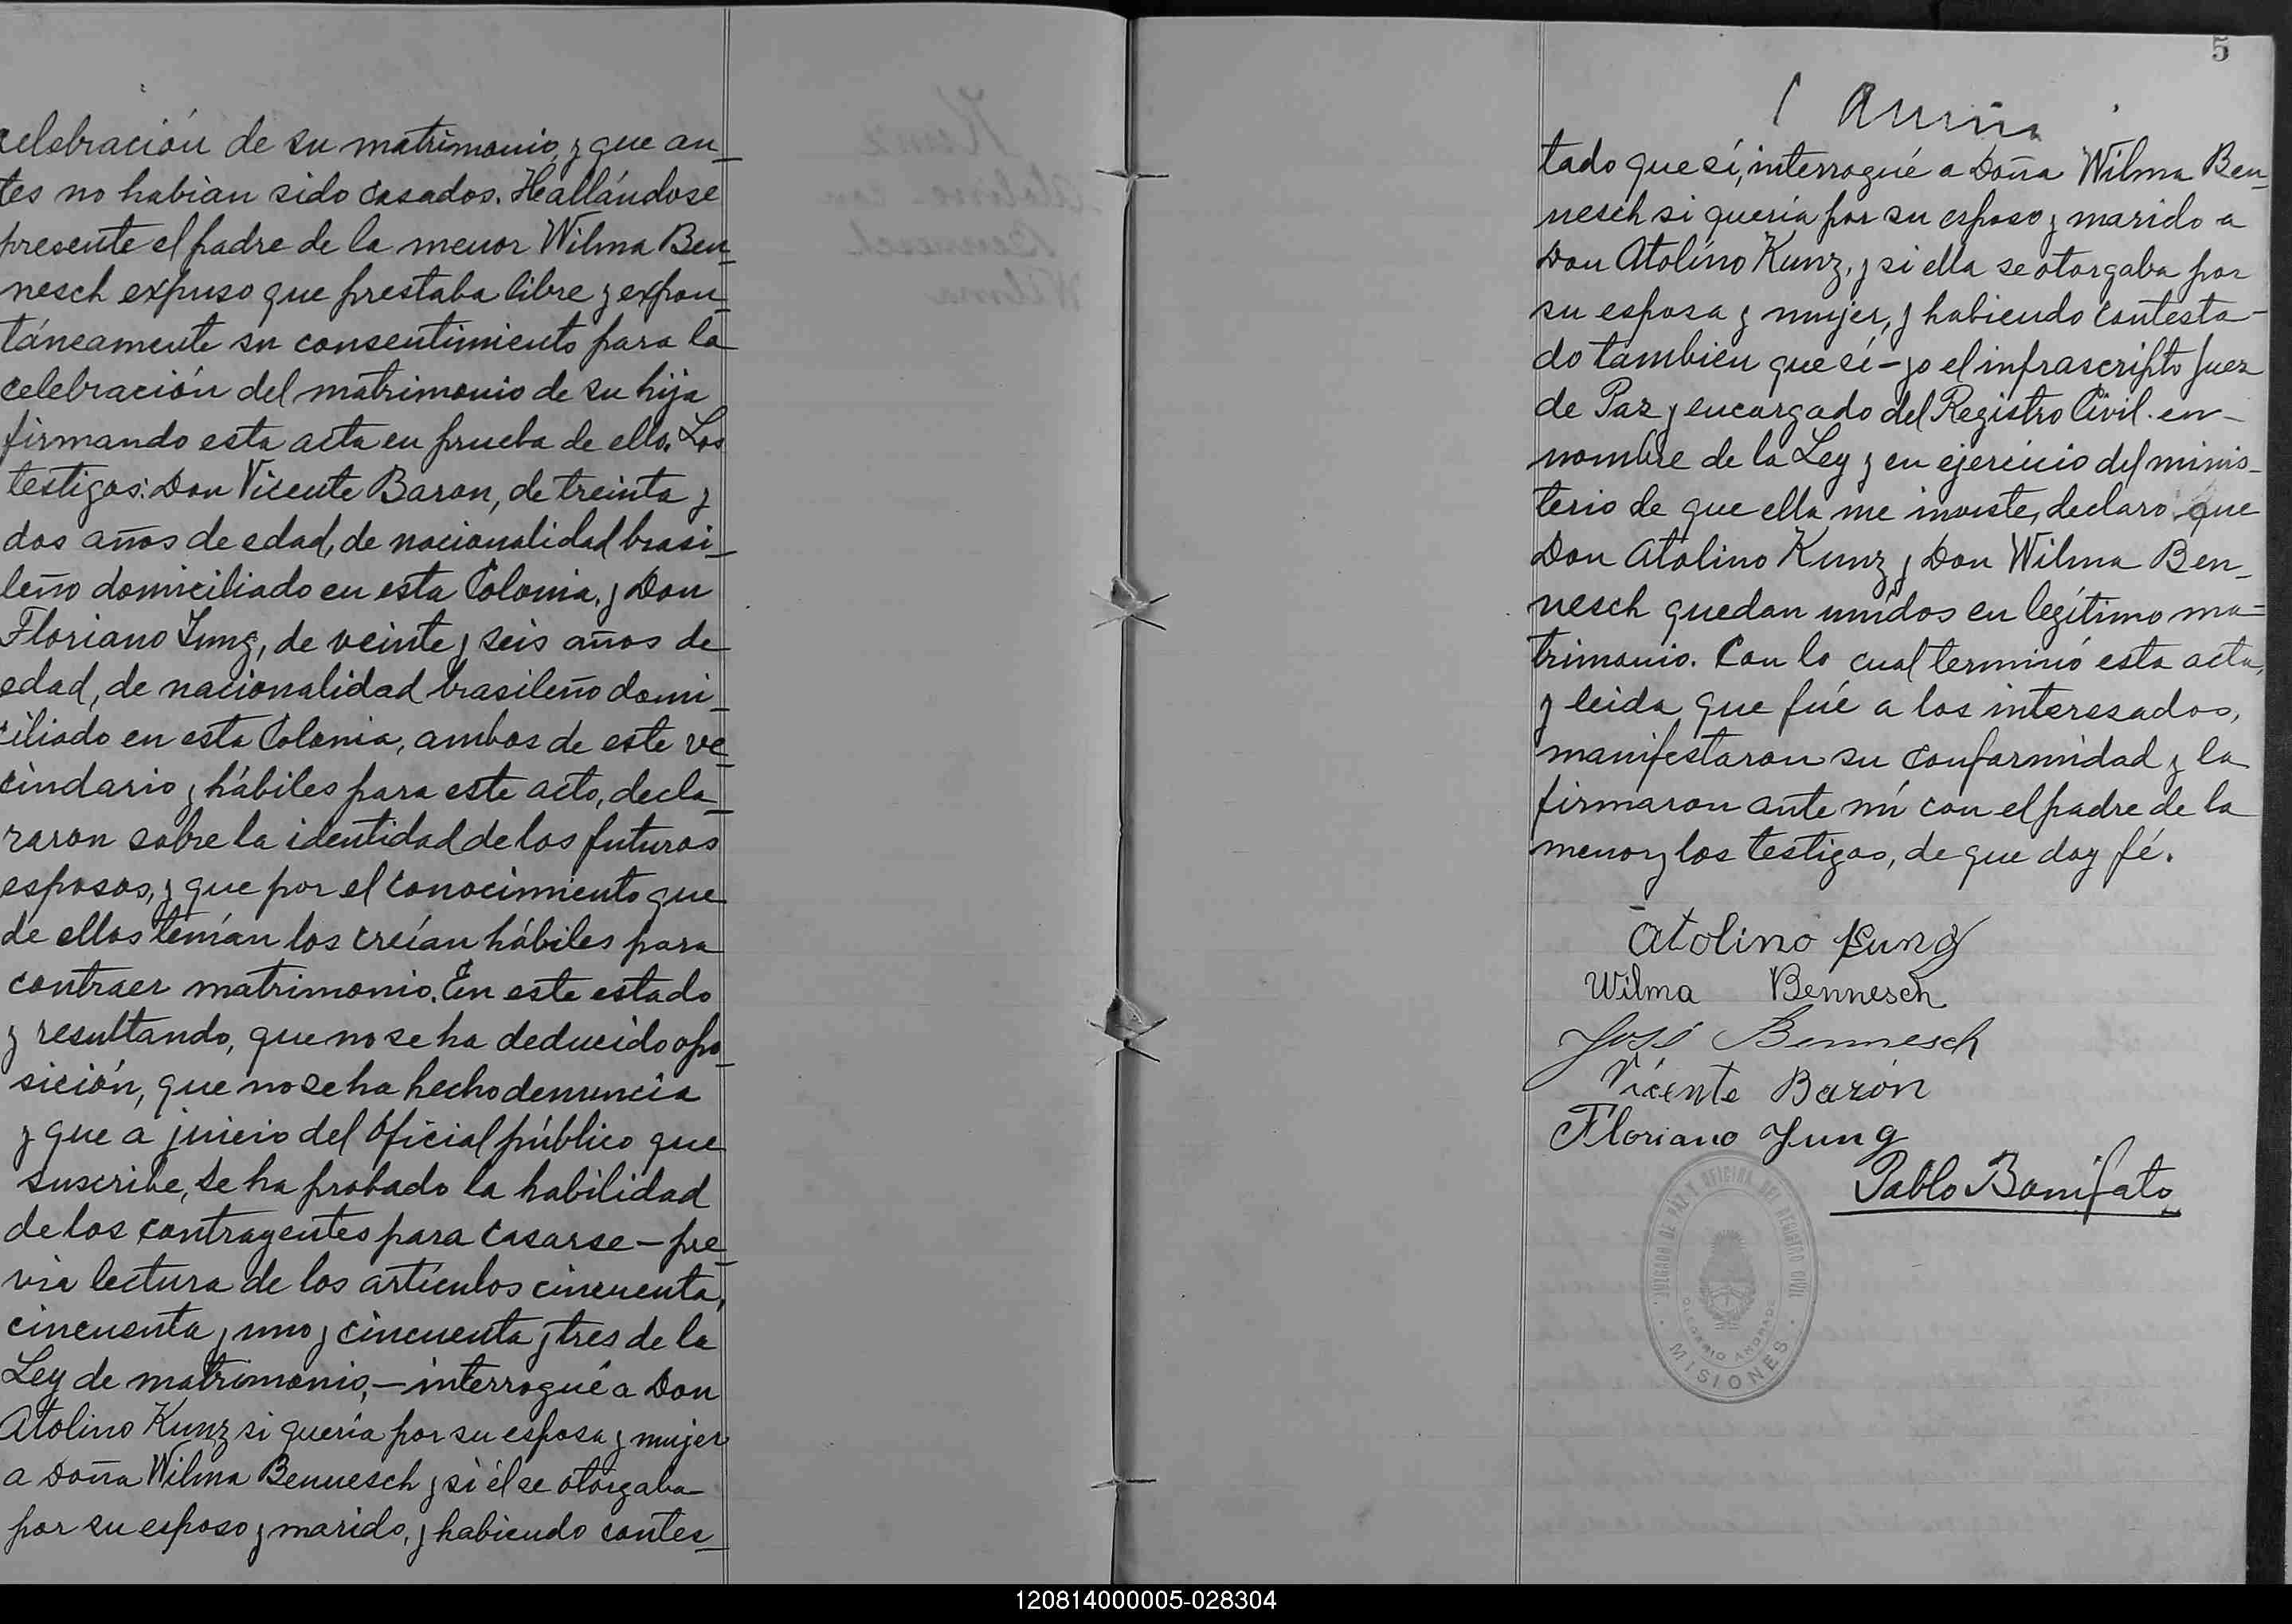 celebración de su matrimonio, y que an_
tes no habían sido casados. Hallándose
presente el padre de la menor Wilma Ben_
nesch expuso que prestaba libre y expon_
táneamente su consentimiento para la
celebración del matrimonio de su hija
firmando esta acta en prueba de ello. Los
testigos: Don Vicente Baron, de treinta y
dos años de edad, de nacionalidad brasi_
leño domiciliado en esta Colonia, y Don
Floriano Jung, de veinte y seis años de
edad, de nacionalidad brasileño domi_
ciliado en esta Colonia, ambos de este ve_
cindario y hábiles para este acto, decla_
raron sobre la identidad de los futuros
esposos, y que por el conocimiento que
de ellos tenían los creían hábiles para
contraer matrimonio. En este estado
y resultando, que no se ha deducido opo_
sición, que no se ha hecho denuncia
y que a juicio del Oficial público que
suscribe, se ha probado la habilidad
de los contrayentes para casarse - pre_
via lectura de los artículos cincuenta,
cincuenta y uno y cincuenta y tres de la
Ley de matrimonio, - interrogué a Don
Atolino Kunz si quería por su esposa y mujer
a Doña Wilma Bennesch y si él se otorgaba
por su esposo y marido, y habiendo contes_
5
tado que sí, interrogué a Doña Wilma Ben_
nesch si quería por su esposo y marido a
Don Atolino Kunz, y si ella se otorgaba por
su esposa y mujer, y habiendo contesta-
do tambien que sí - yo el infrascripto Juez
de Paz y encargado del Registro Civil en_
nombre de la Ley y en ejercicio del minis_
terio de que ella me inviste, declaro que
Don Atolino Kunz y Don Wilma Ben_
nesch quedan unidos en legítimo ma=
trimonio. Con lo cual terminó esta acta,
y leida que fué a los interesados,
manifestaron su conformidad y la
firmaron ante mí con el padre de la
menor y los testigos, de que doy fé.
Atolino Kunz
Wilma Bennesch
José Bennesch
Vicente Barón
Floriano Jung
Pablo Bonifato
JUZGADO DE PAZ Y OFICINA DEL REGISTRO CIVIL
OLEGARIO ANDRADE
MISIONES
120814000005-028304